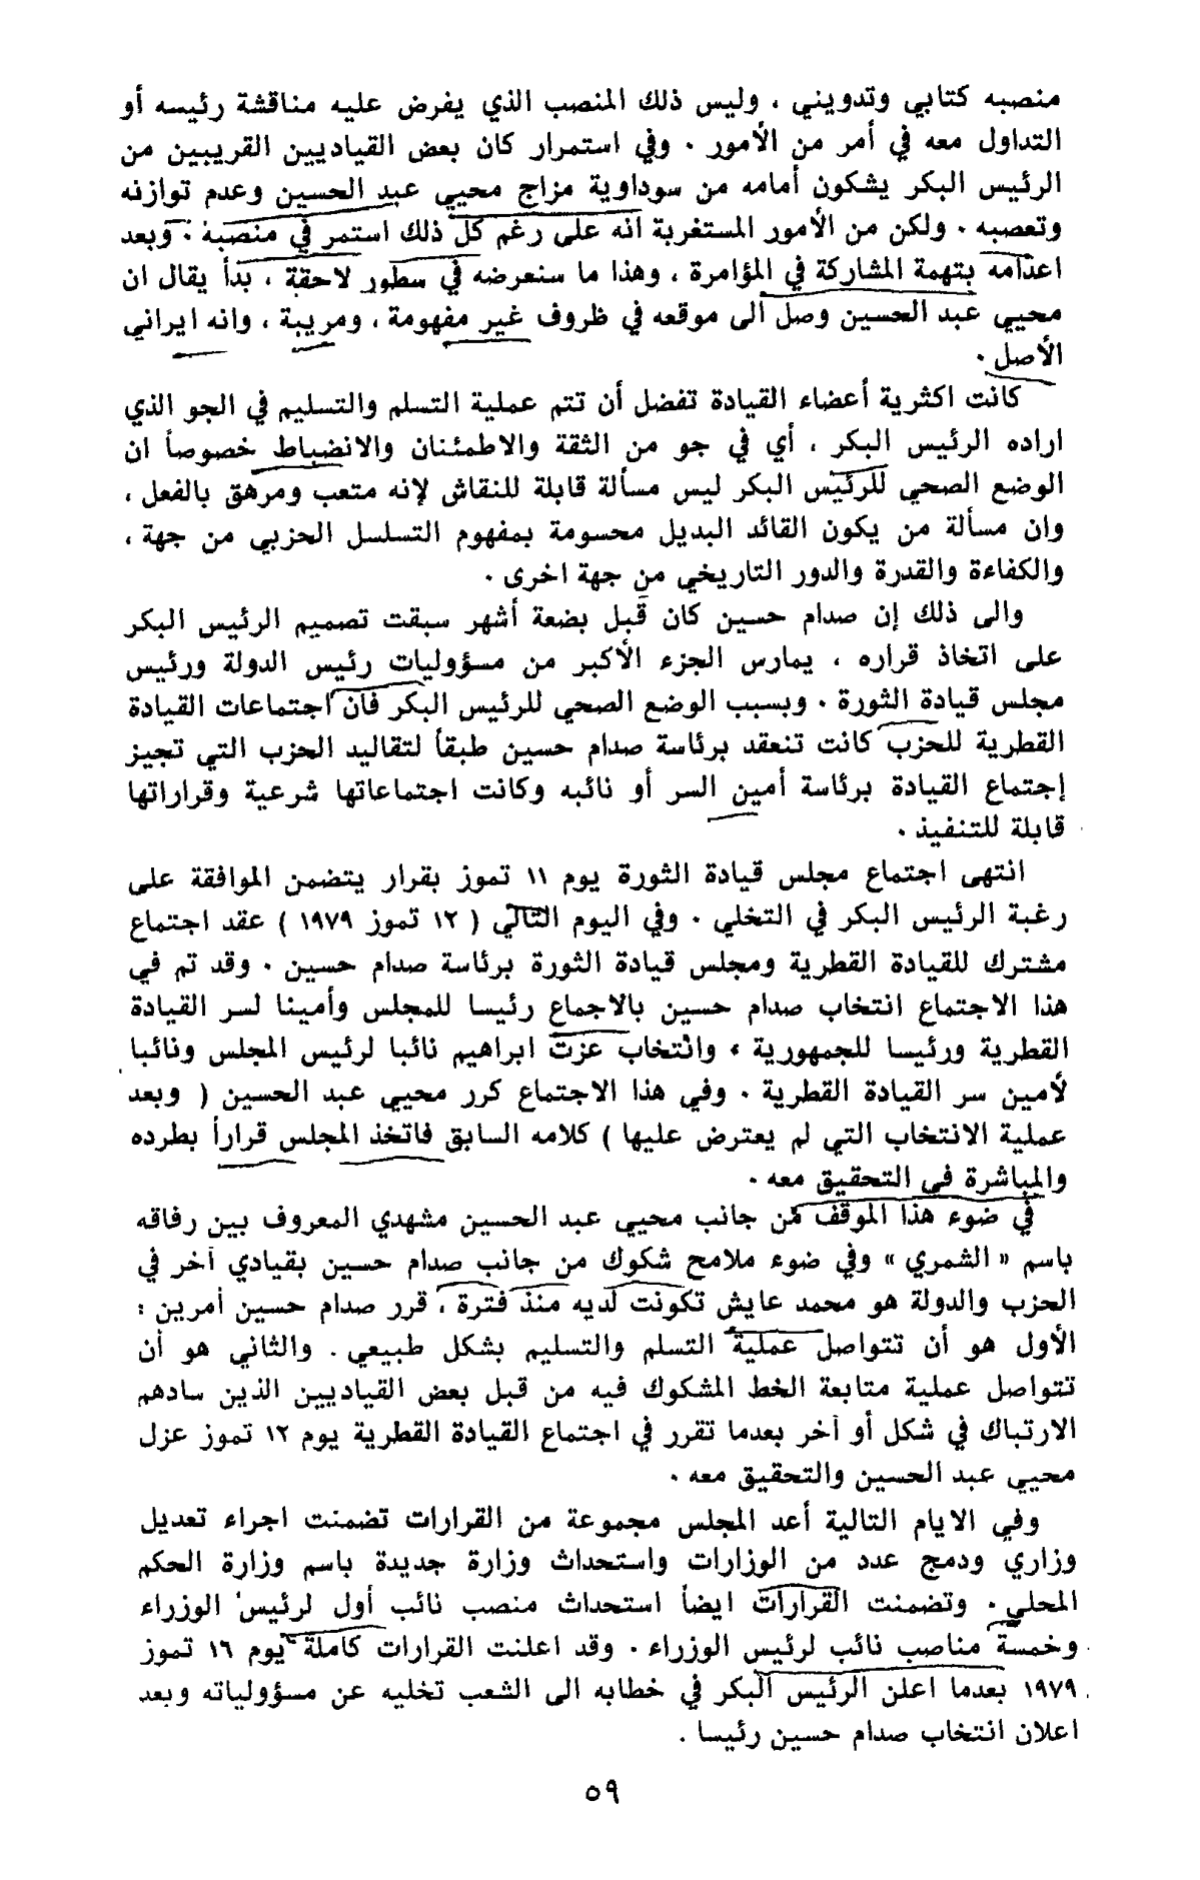 منصبه كتابي وتدويني ، وليس ذلك المنصب الذي يفرض عليه مناقشة رئيسه أو
التداول معه في أمر من الأمور . وفي استمرار كان بعض القياديين القريبين من
الرئيس البكر يشكون أمامه من سوداوية مزاج محيي عبد الحسين وعدم توازنه
وتعصبه . ولكن من الأمور المستغربة انه على رغم كل ذلك استمر في منصبه . وبعد
اعدامه بتهمة المشاركة في المؤامرة ، وهذا ما سنعرضه في سطور لاحقة ، بدأ يقال ان
محيي عبد الحسين وصل الى موقعه في ظروف غير مفهومة ، ومريبة ، وانه ايراني
الأصل .
كانت اكثرية أعضاء القيادة تفضل أن تتم عملية التسلم والتسليم في الجو الذي
اراده الرئيس البكر ، أي في جو من الثقة والاطمئنان والانضباط خصوصاً ان
الوضع الصحي للرئيس البكر ليس مسألة قابلة للنقاش لإنه متعب ومرهق بالفعل ،
وان مسألة من يكون القائد البديل محسومة بمفهوم التسلسل الحزبي من جهة ،
والكفاءة والقدرة والدور التاريخي من جهة اخرى .
والى ذلك إن صدام حسين كان قبل بضعة أشهر سبقت تصميم الرئيس البكر
على اتخاذ قراره ، يمارس الجزء الأكبر من مسؤوليات رئيس الدولة ورئيس
مجلس قيادة الثورة . وبسبب الوضع الصحي للرئيس البكر فان اجتماعات القيادة
القطرية للحزب كانت تنعقد برئاسة صدام حسين طبقاً لتقاليد الحزب التي تجيز
إجتماع القيادة برئاسة أمين السر أو نائبه وكانت اجتماعاتها شرعية وقراراتها
قابلة للتنفيذ .
انتهى اجتماع مجلس قيادة الثورة يوم ١١ تموز بقرار يتضمن الموافقة على
رغبة الرئيس البكر في التخلي . وفي اليوم التالي ( ١٢ تموز ١٩٧٩ ) عقد اجتماع
مشترك للقيادة القطرية ومجلس قيادة الثورة برئاسة صدام حسين . وقد تم في
هذا الاجتماع انتخاب صدام حسين بالاجماع رئيسا للمجلس وأمينا لسر القيادة
القطرية ورئيسا للجمهورية ، وانتخاب عزت ابراهيم نائبا لرئيس المجلس ونائبا
لأمين سر القيادة القطرية . وفي هذا الاجتماع كرر محيي عبد الحسين ( وبعد
عملية الانتخاب التي لم يعترض عليها ) كلامه السابق فاتخذ المجلس قراراً بطرده
والمباشرة في التحقيق معه .
في ضوء هذا الموقف من جانب محيي عبد الحسين مشهدي المعروف بين رفاقه
باسم « الشمري » وفي ضوء ملامح شكوك من جانب صدام حسين بقيادي آخر في
الحزب والدولة هو محمد عايش تكونت لديه منذ فترة ، قرر صدام حسين أمرين :
الأول هو أن تتواصل عملية التسلم والتسليم بشكل طبيعي . والثاني هو أن
تتواصل عملية متابعة الخط المشكوك فيه من قبل بعض القياديين الذين سادهم
الارتباك في شكل أو آخر بعدما تقرر في اجتماع القيادة القطرية يوم ١٢ تموز عزل
محيي عبد الحسين والتحقيق معه .
وفي الايام التالية أعد المجلس مجموعة من القرارات تضمنت اجراء تعديل
وزاري ودمج عدد من الوزارات واستحداث وزارة جديدة باسم وزارة الحكم
المحلي . وتضمنت القرارات ايضاً استحداث منصب نائب أول لرئيس الوزراء
وخمسة مناصب نائب لرئيس الوزراء . وقد اعلنت القرارات كاملة يوم ١٦ تموز
١٩٧٩ بعدما اعلن الرئيس البكر في خطابه الى الشعب تخليه عن مسؤولياته وبعد
اعلان انتخاب صدام حسين رئيسا .
٥٩